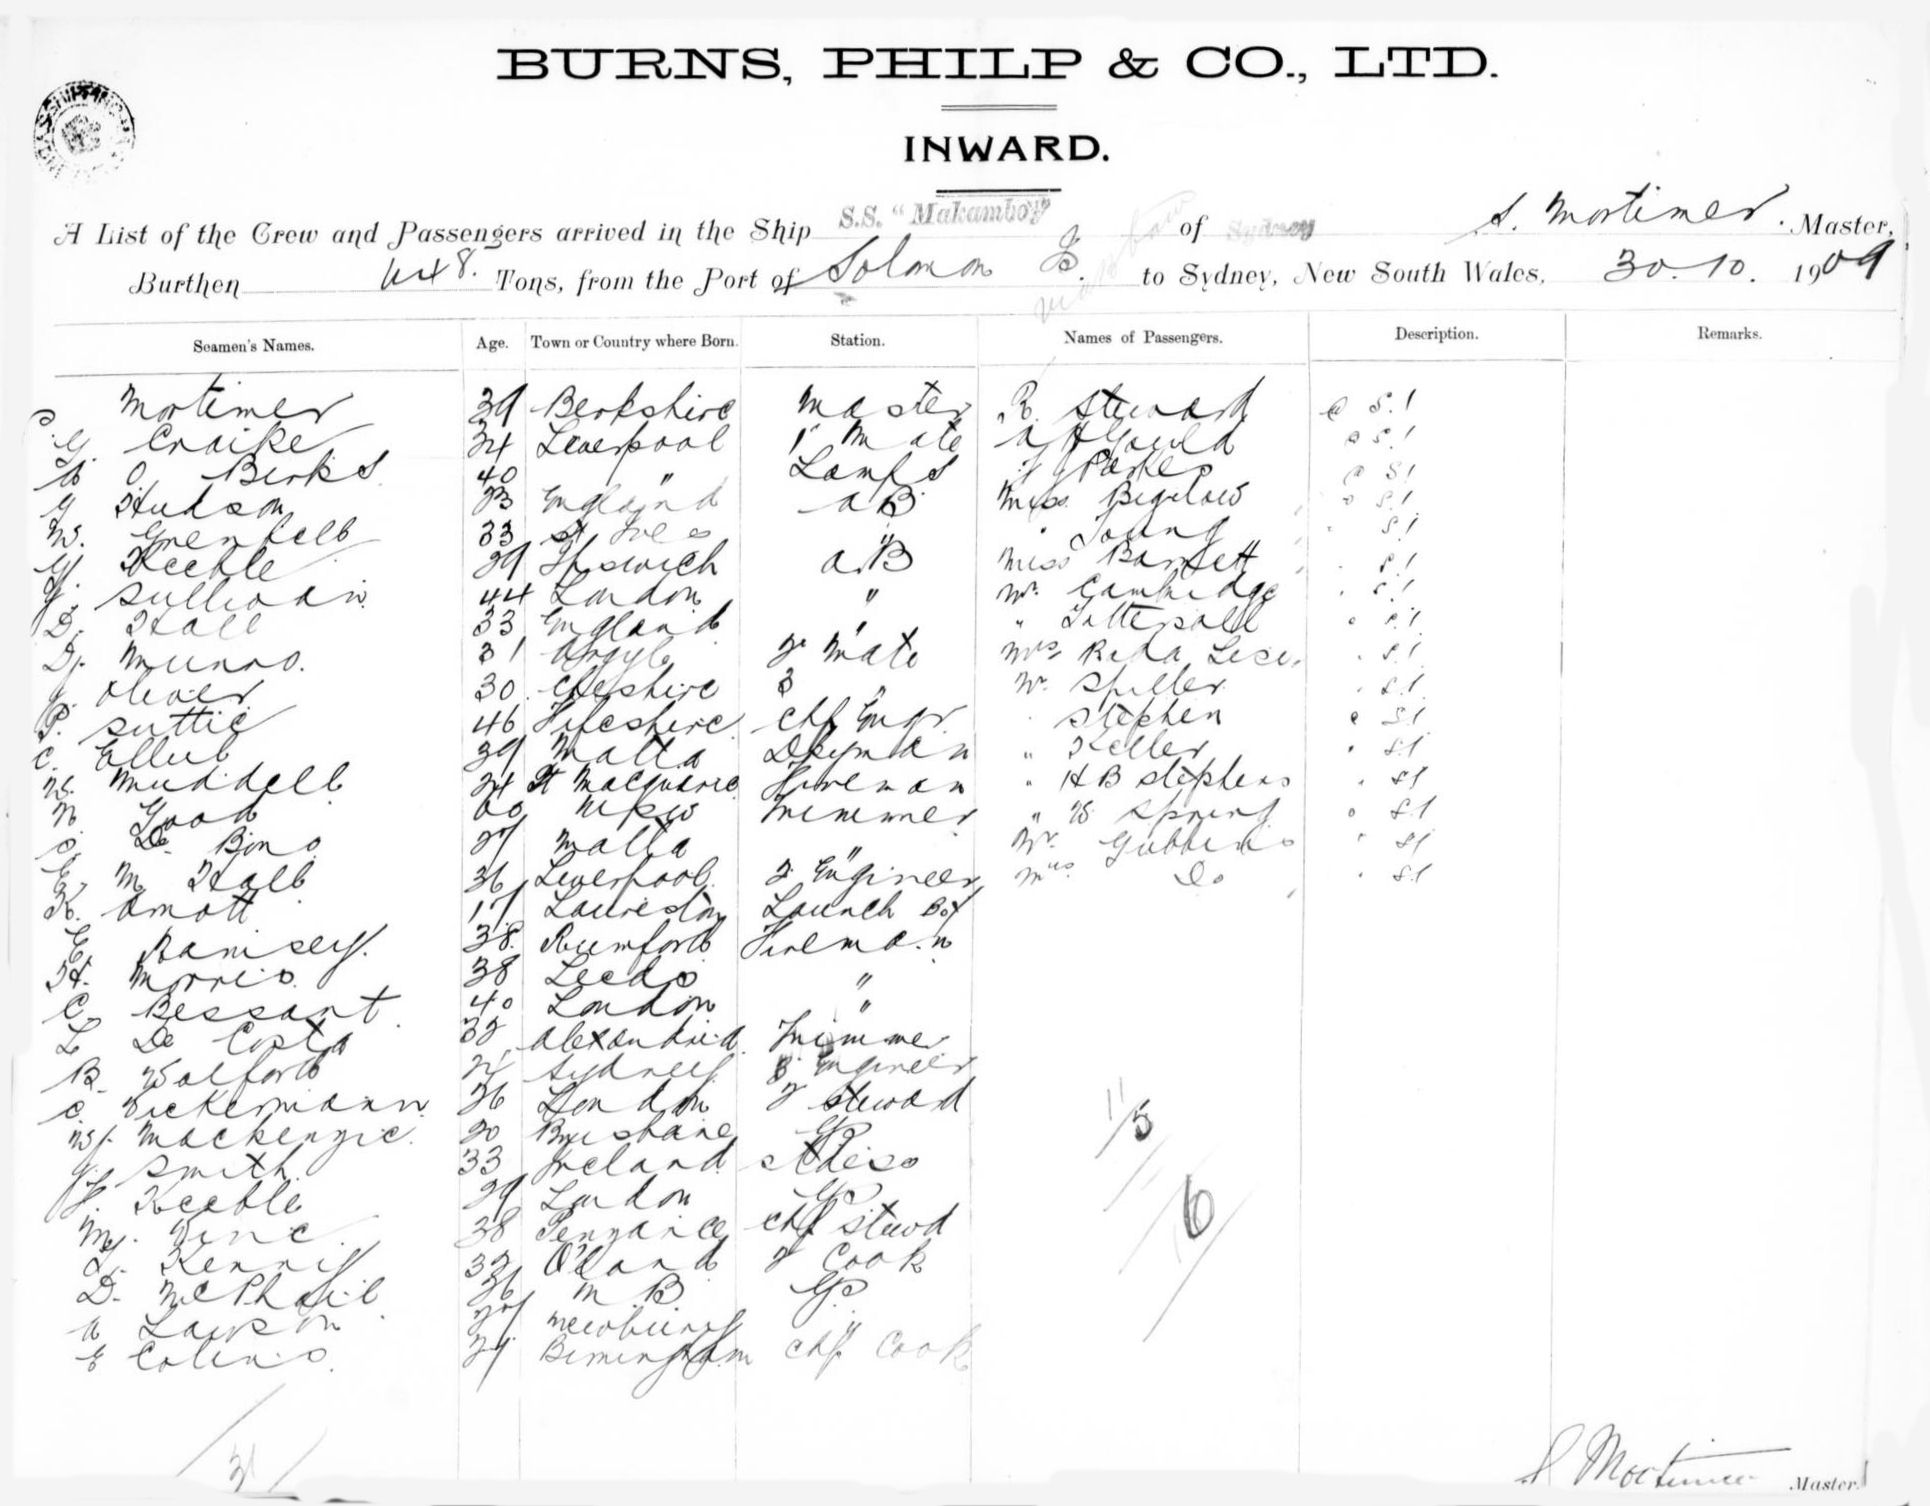 BURNS, PHILP & CO., LTD.
INWARD.
A List of the Crew and Passengers arrived in the Ship S.S. "Makambo" of Sydney S. Mortimer. Master,
Burthen Tons, from the Port of Solomon to Sydney, New South Wales, 30.10. 1909
Seamen's Names. Age. Town or Country where Born. Station. Names of Passengers. Description. Remarks.
Mortimer 39 Berkshire Master R. Steward S.1
G. Craike 34 Liverpool 1st Mate A H Gould S.1
O. Birks 40 " Lamps Parkes S1
G Hudson England AB Miss Bigelow S.1
W. Grenfell 33 St Ives " " Young S.1
G. Keeble 39 Ipswich A.B Miss Barnett S.1
J. Sullivan 44 London " Mr. Cambridge S.1
D. Hall 33 England " " Tattersall S.1
D. Munro. 31 Argyle 2 Mate Mrs S.1
J. Oliver 30 Cheshire 3 " Mr. Spiller S.1
P. Suttie 46 Fifeshire Chf Engr. Stephen S1
C. Ellul 39 Malta Dkyman " Keller S.1
W. Muddell 24 Pt Macquarie Fireman " H B Stephens S1
N. Good NSW Trimmer " W Spring S.1
De Bono 27 Malta " Mr. Gubbins S1
E. M Hall 36 Liverpool 2 Engineer Mrs Do S1
K. Amott 17 Laurieston Launch Boy
E. Ramsey. 38. Rumford Fireman
H. Morris 38 Leeds "
C. Bessant 40 London "
L De Costa 32 Alexandria Trimmer
B. Wolford 24 Sydney 3 Engineer
C. Dickermann 36 London 2 Steward
W. Mackenzie. 20 Brisbane GS
G. Smith. 33 Ireland Stdess
J. Keeble 29 London GS
Vine 38 Penzance Chf Stewd
Kenny 32 Oland 2 Cook
D. McPhail 36 M B GS
A Lawson 27 Newbury "
E Colins Birmingham Chf Cook
11/5
16
31
S Mortimer Master.